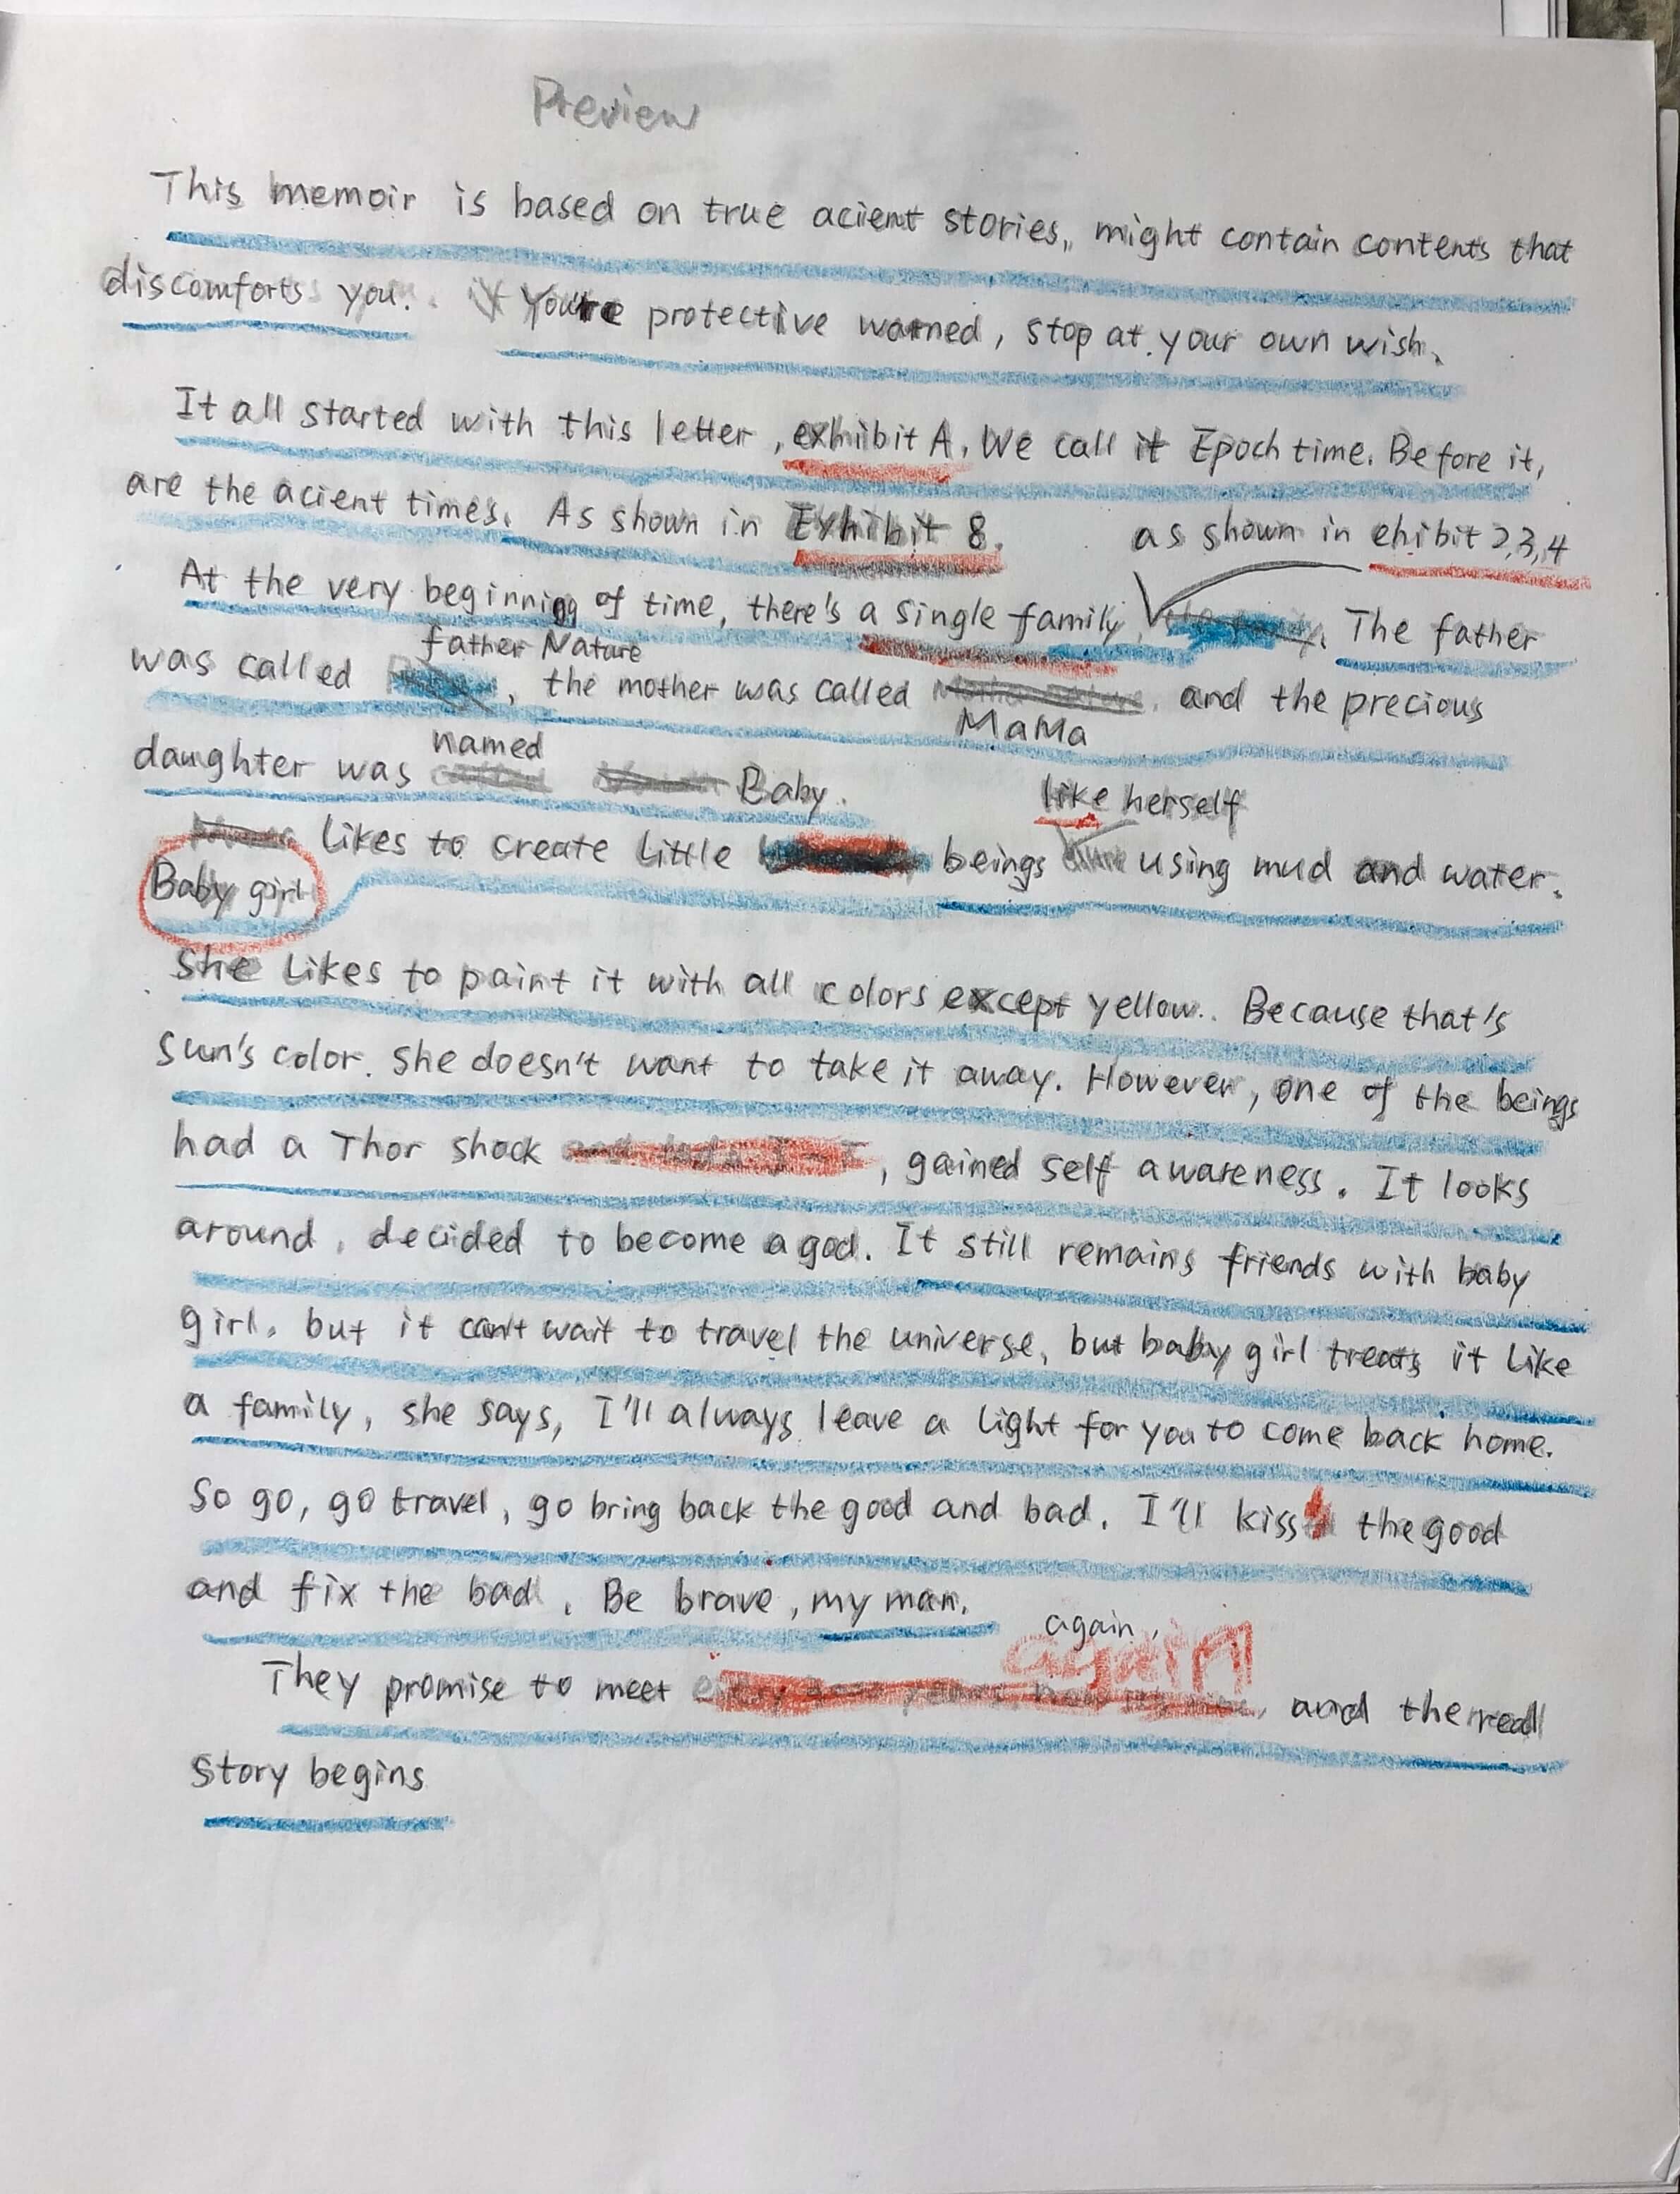 Preview
This memoir is based on true acient stories, might contain contents that
discomforts you. You're protective warned, stop at your own wish.
It all started with this letter, exhibit A. We call it Epoch time. Before it,
are the acient times. As shown in Exhibit 8.
as shown in ehibit 2,3,4
At the very beginning of time, there's a single family. The father
father Nature
was called , the mother was called and the precious
MaMa
named
daughter was Baby.
like herself
Likes to create little beings using mud and water.
Baby girl
She likes to paint it with all colors except yellow. Because that's
sun's color. She doesn't want to take it away. However, one of the beings
had a Thor shock , gained self awareness. It looks
around, decided to become a god. It still remains friends with baby
girl, but it can't wait to travel the universe, but baby girl treats it like
a family, she says, I'll always leave a light for you to come back home.
So go, go travel, go bring back the good and bad. I'll kiss the good
and fix the bad. Be brave, my man.
again,
again
They promise to meet , and the real
story begins